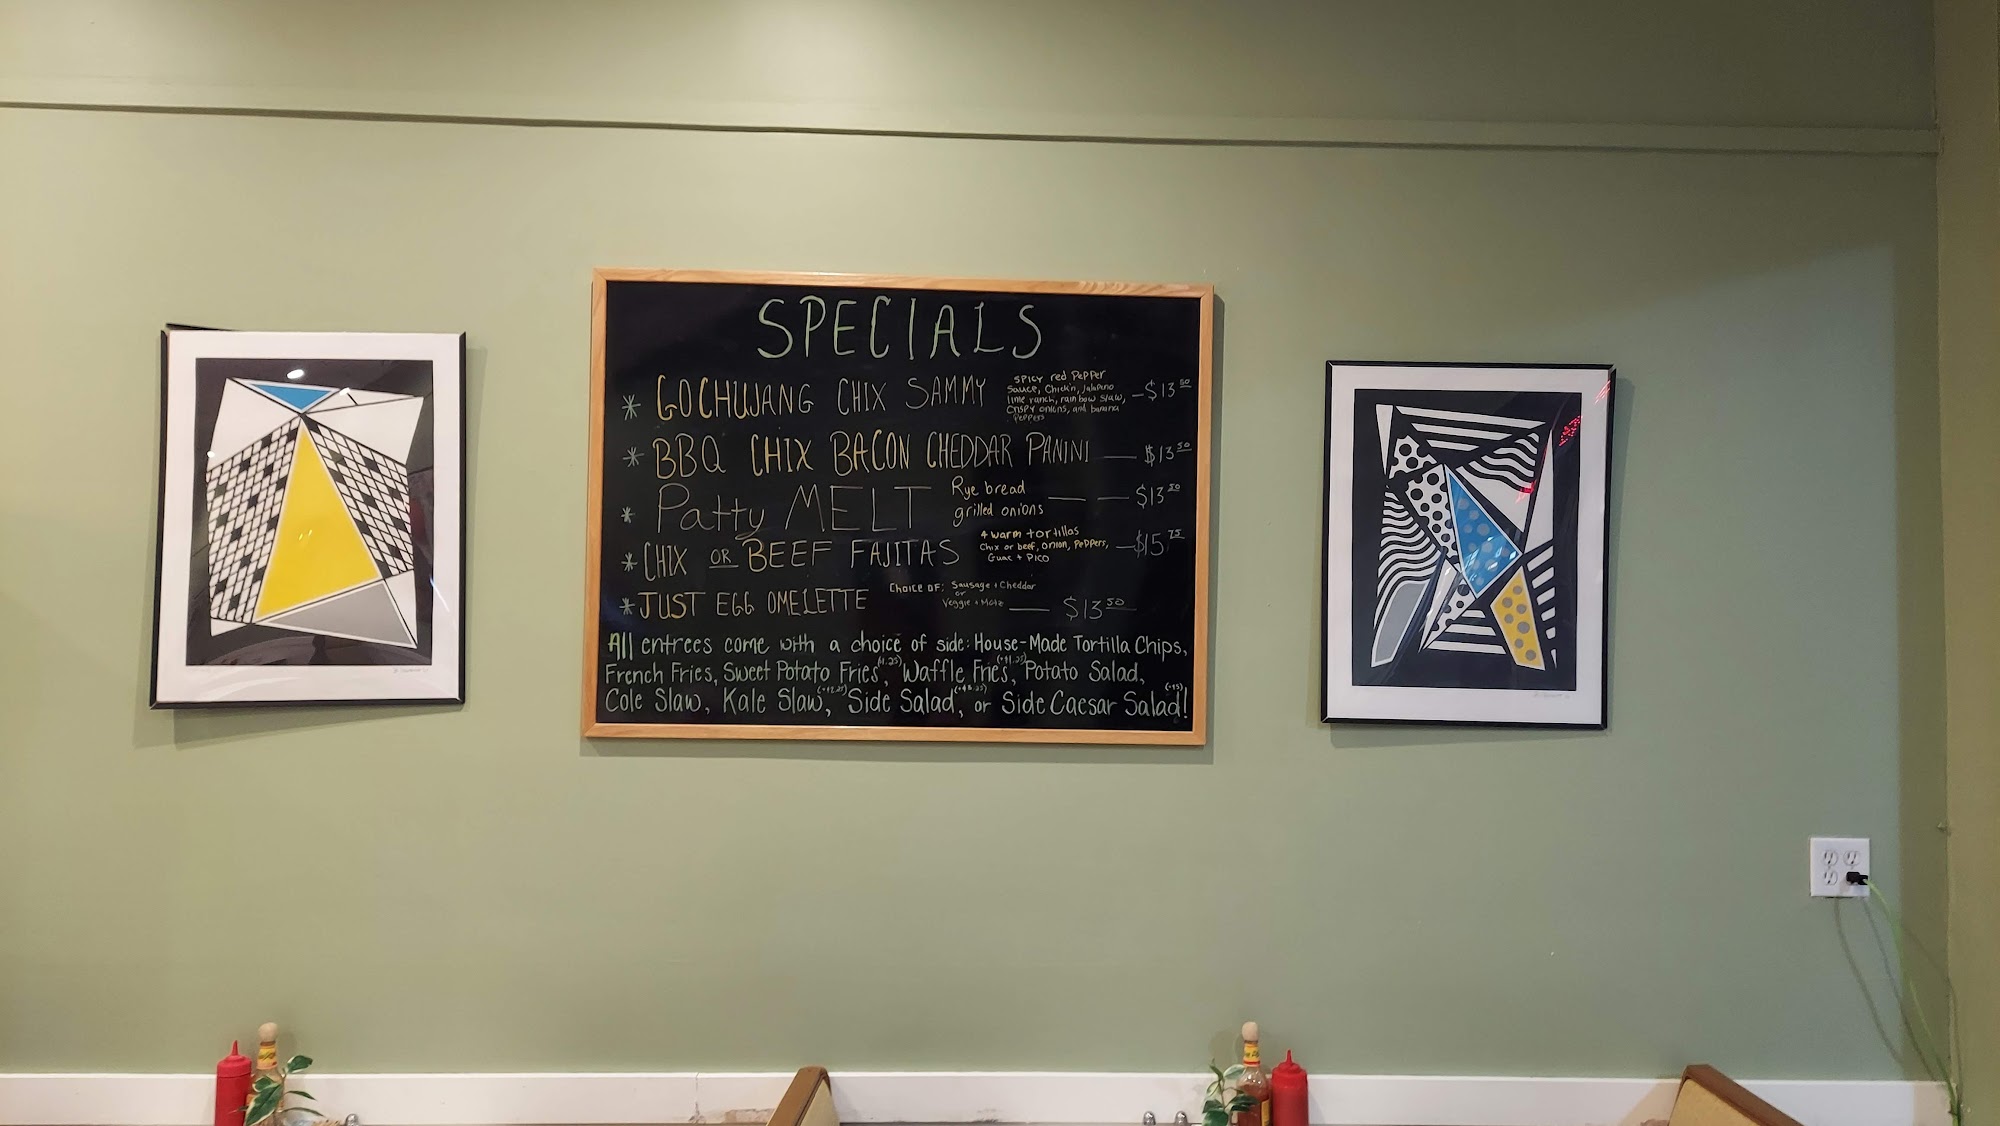 SPECIALS
* GOCHUJANG CHIX SAMMY
SPICY red PePPer
Sauce, Chick'n, jalapeno
lime ranch, rainbow slaw,
Crispy onions, and banana
Peppers
—$13.50
* BBQ CHIX BACON CHEDDAR PANINI — $13.50
* Patty MELT
Rye bread
grilled onions
— — $13.50
* CHIX OR BEEF FAJITAS
4 warm tortillas
Chix or beef, onion, PePPers,
Guac + Pico
—$15.75
* JUST EGG OMELETTE
CHOICE OF: Sausage + Cheddar
or
Veggie + Motz
— $13.50
All entrees come with a choice of side: House-Made Tortilla Chips,
French Fries, Sweet Potato Fries, Waffle Fries, Potato Salad,
Cole Slaw, Kale Slaw, Side Salad, or Side Caesar Salad!